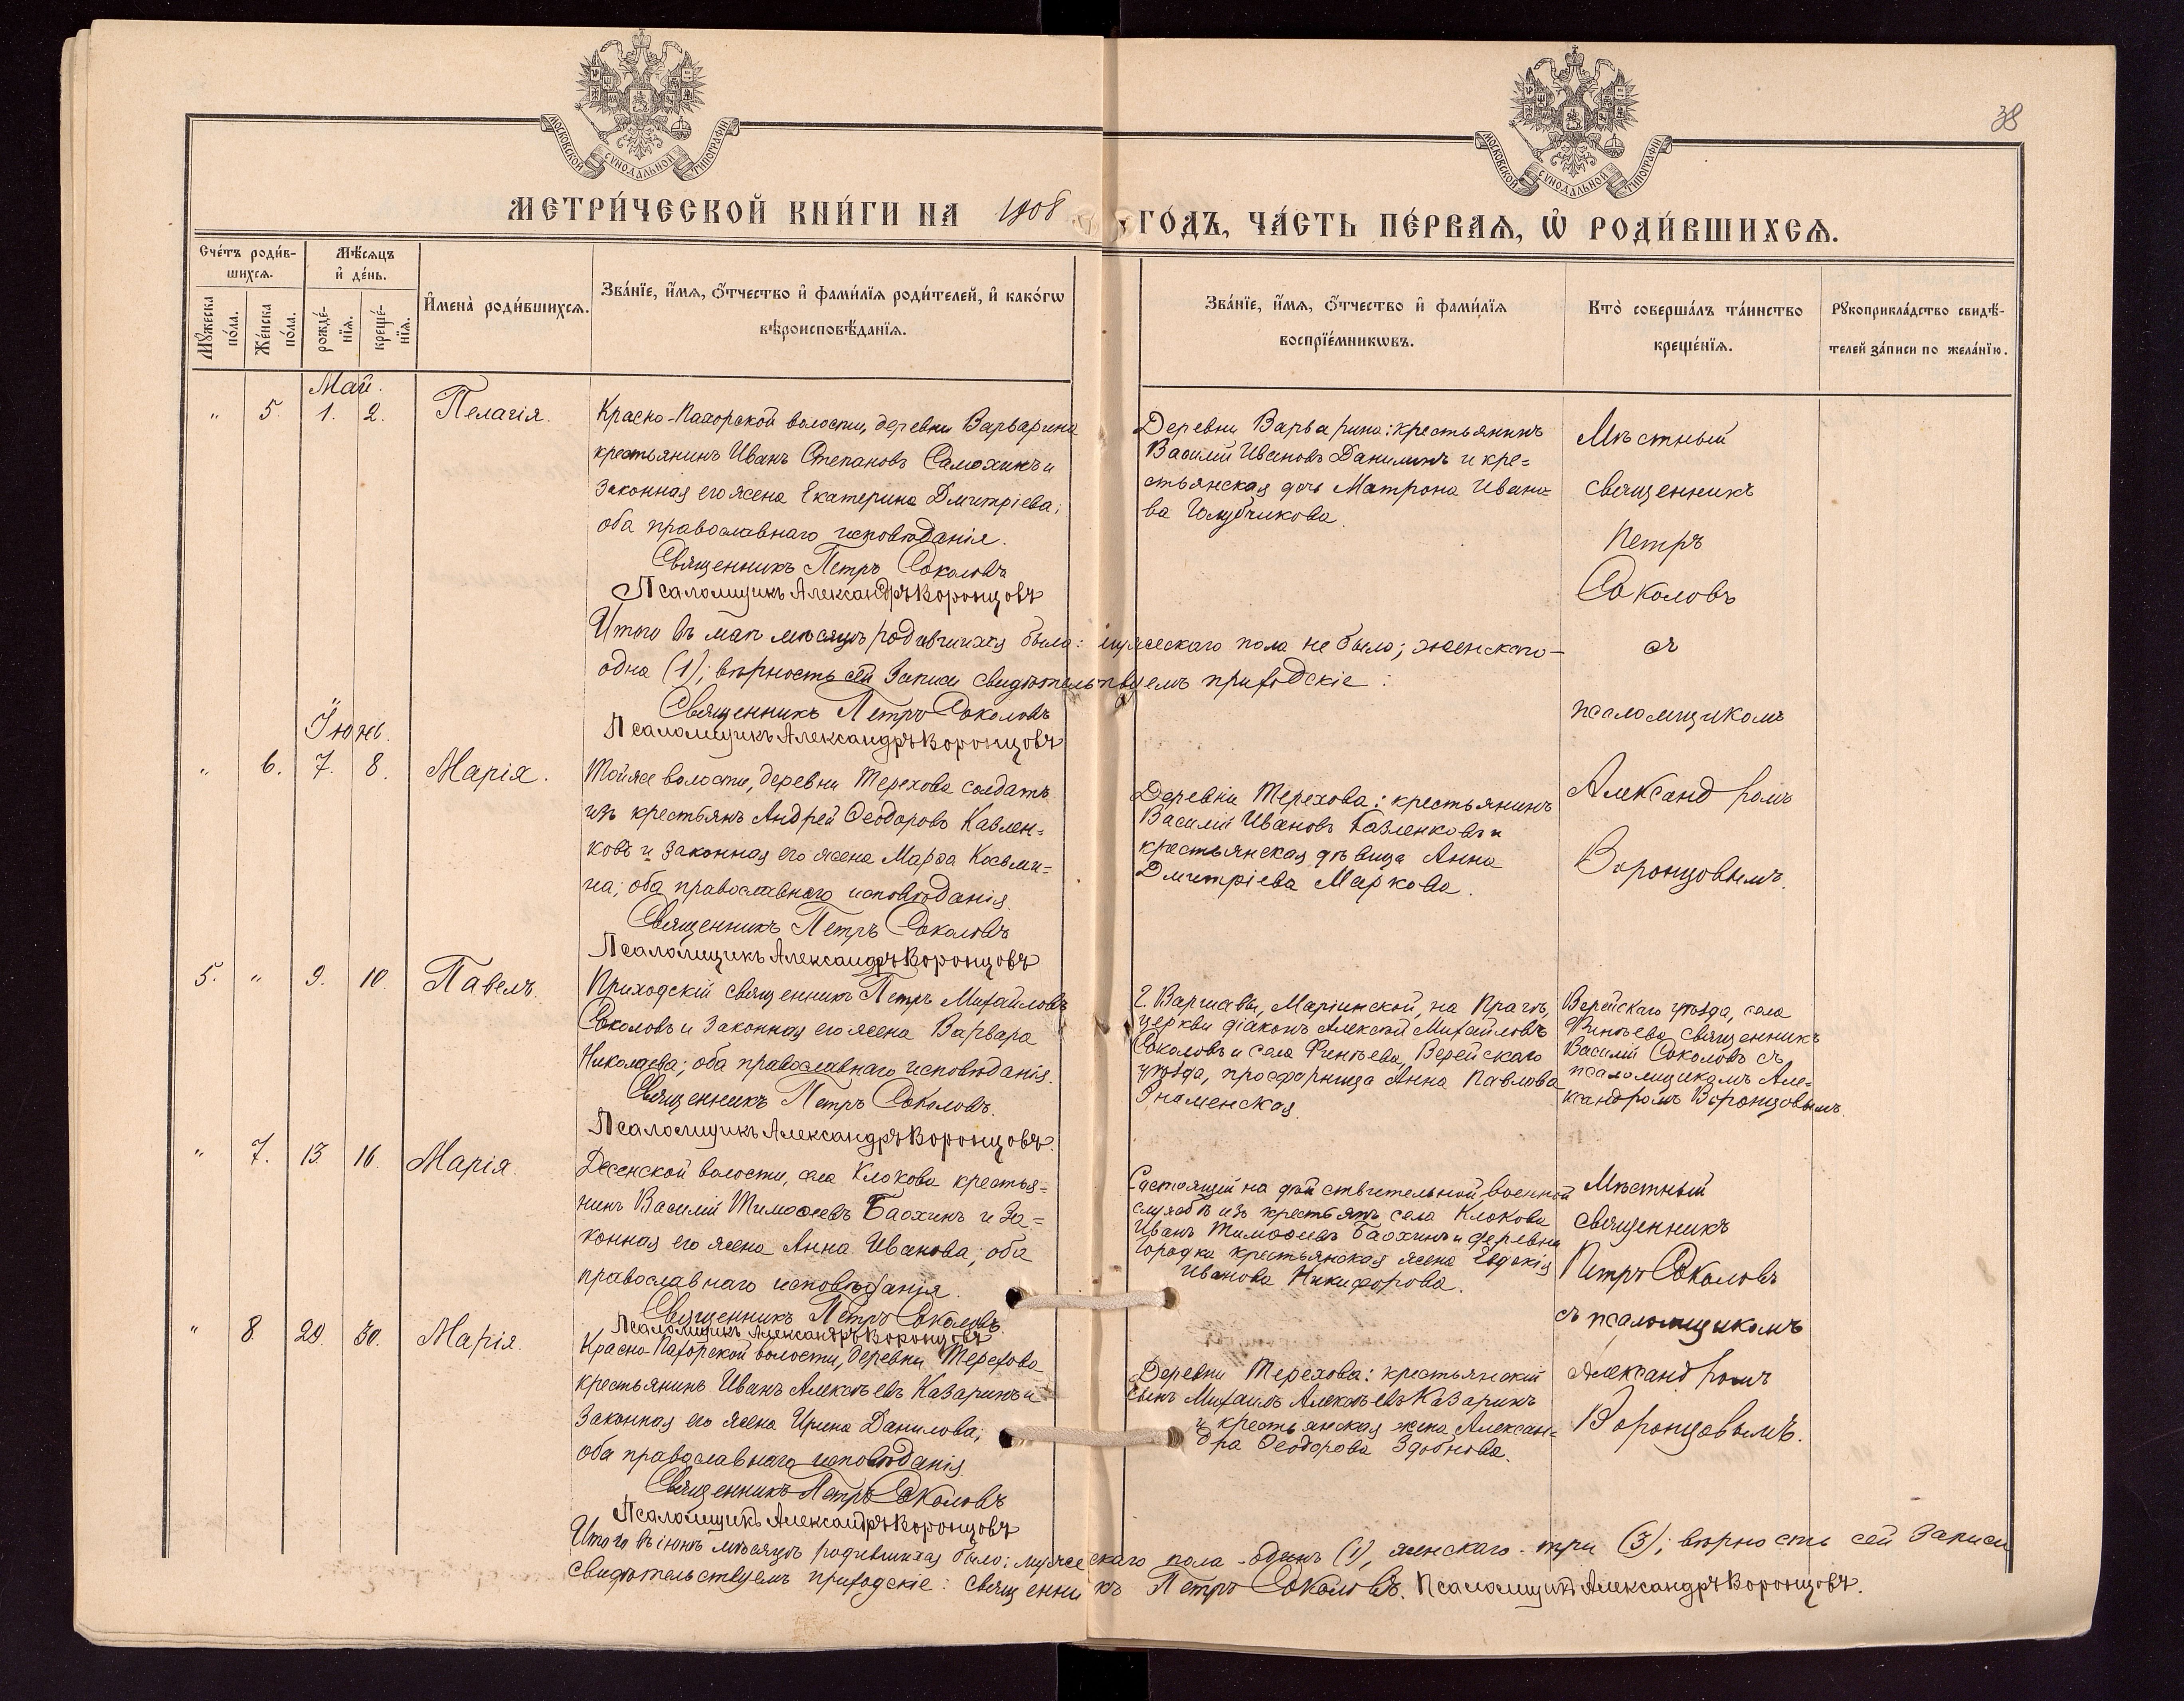 МОСКОВСКОЙ СѴНОДАЛЬНОЙ ТИПОГРАФІИ
МОСКОВСКОЙ СѴНОДАЛЬНОЙ ТИПОГРАФІИ
38
МЕТРИ́ЧЕСКОЙ КНИ́ГИ НА 1908 ГО́ДЪ, ЧА́СТЬ ПЕ́РВАѦ, Ѡ҆ РОДИ́ВШИХСѦ.
Сче́тъ роди́в-
шихсѧ.
Мꙋжеска по́ла.
Же́нска по́ла.
Мѣ́сѧцъ
и҆ де́нь.
рожде́-
нїѧ.
креще́-
нїѧ.
И҆мена̀ роди́вшихсѧ.
Зва́нїе, и҆́мѧ, ѻ҆́тчество и҆ фами́лїѧ роди́телей, и҆ како́гѡ
вѣроисповѣ́данїѧ.
Зва́нїе, и҆́мѧ, ѻ҆́тчество и҆ фами́лїѧ
воспрїе́мникѡвъ.
Кто̀ соверша́лъ та́инство
креще́нїѧ.
Рꙋкоприкла́дство свидѣ́-
телей за́писи по жела́нїю.
Май.
" 5. 1. 2. Пелагія.
Красно-Пахорской волости, деревни Варварина
крестьянинъ Иванъ Степановъ Самохинъ и
законная его жена Екатерина Дмитріева;
оба православнаго исповѣданія.
Священникъ Петръ Соколовъ
Псаломщикъ Александръ Воронцовъ
Деревни Варварина: крестьянинъ
Василій Ивановъ Данилинъ и кре=
стьянская дочь Матрона Ивано=
ва Голубчикова.
Мѣстный
священникъ
Петръ
Соколовъ
съ
псаломщикомъ
Александромъ
Воронцовымъ.
Итого въ маѣ мѣсяцѣ родившихся было: мужескаго пола не было; женскаго—
одна (1); вѣрность сей записи свидѣтельствуемъ приходскіе:
Священникъ Петръ Соколовъ
Псаломщикъ Александръ Воронцовъ
Іюнь.
" 6. 7. 8. Марія.
Той же волости, деревни Терехова солдатъ
изъ крестьянъ Андрей Ѳеодоровъ Кавлен=
ковъ и законная его жена Марѳа Косьми=
на; оба православнаго исповѣданія.
Священникъ Петръ Соколовъ
Псаломщикъ Александръ Воронцовъ
Деревни Терехова: крестьянинъ
Василій Ивановъ и
крестьянская дѣвица Анна
Дмитріева Маркова.
5. " 9. 10. Павелъ.
Приходскій священникъ Петръ Михайловъ
Соколовъ и законная его жена Варвара
Николаева; оба православнаго исповѣданія.
Священникъ Петръ Соколовъ.
Псаломщикъ Александръ Воронцовъ.
Г. Варшавы, Маріинской, на Прагѣ,
церкви діаконъ Алексѣй Михайловъ
Соколовъ и села Финѣева, Верейскаго
уѣзда, просфорница Анна Павлова
Знаменская.
Верейскаго уѣзда, села
Финѣева священникъ
Василій Соколовъ съ
псаломщикомъ Але=
ксандромъ Воронцовымъ.
" 7. 13. 16. Марія.
Десенской волости, села Клокова крестья=
нинъ Василій Тимоѳеевъ Баохинъ и за=
конная его жена Анна Иванова; оба
православнаго исповѣданія.
Священникъ Петръ Соколовъ.
Псаломщикъ Александръ Воронцовъ
Состоящій на дѣйствительной военной
службѣ изъ крестьянъ села Клокова
Иванъ Тимоѳеевъ Баохинъ и деревни
Городка крестьянская жена Евдокія
Иванова Никифорова.
Мѣстный
священникъ
Петръ Соколовъ
съ псаломщикомъ
Александромъ
Воронцовымъ.
" 8. 20. 30. Марія.
Красно-Пахорской волости, деревни Терехова
крестьянинъ Иванъ Алексѣевъ Казаринъ и
законная его жена Ирина Данилова;
оба православнаго исповѣданія.
Священникъ Петръ Соколовъ
Псаломщикъ Александръ Воронцовъ
Деревни Терехова: крестьянскій
сынъ Михаилъ Алексѣевъ Казаринъ
и крестьянская жена Алексан=
дра Ѳеодорова Здобнова.
Итого въ іюнѣ мѣсяцѣ родившихся было: мужескаго пола - одинъ (1), женскаго - три (3); вѣрность сей записи
свидѣтельствуемъ приходскіе: священникъ Петръ Соколовъ. Псаломщикъ Александръ Воронцовъ.